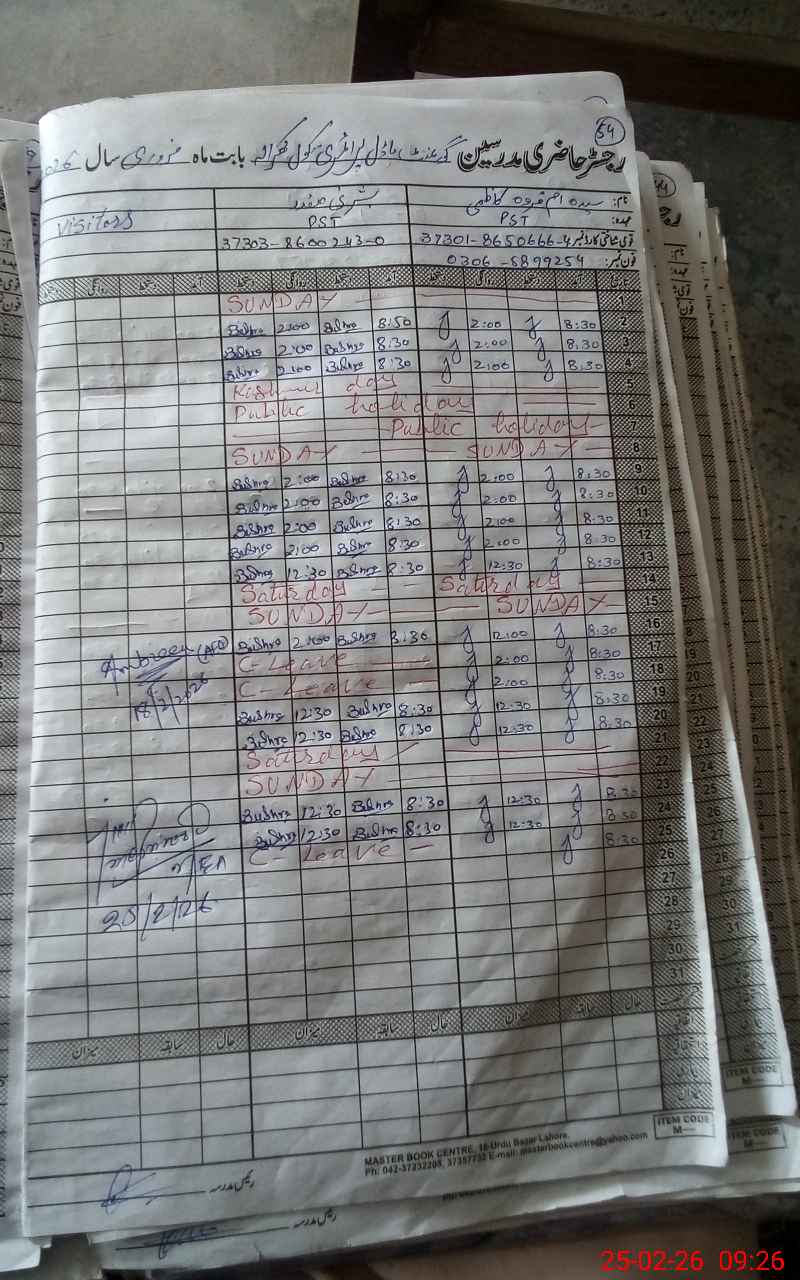 54
رجسٹر حاضری مدرسین گورنمنٹ ماڈل پرائمری سکول بابت ماہ فروری سال
نام: سیدہ ام فروہ کاظمی بشریٰ صفدر Visitors
عہدہ: PST PST
قومی شناختی کارڈ نمبر 37301-8650666-4 37303-8600243-0
فون نمبر: 0306-5899254
تاریخ آمد دستخط روانگی دستخط آمد دستخط روانگی دستخط آمد دستخط روانگی
1 SUNDAY
2 8:30 2:00 8:30 Bushra 2:00 Bushra
3 8:30 2:00 8:30 Bushra 2:00 Bushra
4 8:30 2:00 8:30 Bushra 2:00 Bushra
5 Kashmir day
6 Public holiday
7 Public holiday
8 SUNDAY SUNDAY
9 8:30 2:00 8:30 Bushra 2:00 Bushra
10 8:30 2:00 8:30 Bushra 2:00 Bushra
11 8:30 2:00 8:30 Bushra 2:00 Bushra
12 8:30 2:00 8:30 Bushra 2:00 Bushra
13 8:30 12:30 8:30 Bushra 12:30 Bushra
14 Saturday Saturday
15 SUNDAY SUNDAY
16 8:30 2:00 8:30 Bushra 2:00 Bushra
17 8:30 2:00 C-Leave Ambreen (AEO)
18 8:30 2:00 C-Leave 18/2/2026
19 8:30 12:30 8:30 Bushra 12:30 Bushra
20 8:30 12:30 8:30 Bushra 12:30 Bushra
21 Saturday
22 SUNDAY
23 8:30 12:30 8:30 Bushra 12:30 Bushra
24 8:30 12:30 8:30 Bushra 12:30 Bushra
25 8:30 C-Leave
26
25/2/26
27
28
29
30
31
حال سابقہ میزان حال سابقہ میزان حال سابقہ میزان
ITEM CODE
M—
MASTER BOOK CENTRE, 16-Urdu Bazar Lahore.
Ph: 042-37232205, 37357732 E-mail: masterbookcentre@yahoo.com
رئیس مدرسہ
رئیس مدرسہ
ITEM CODE
M—
ITEM CODE
M—
25-02-26 09:26